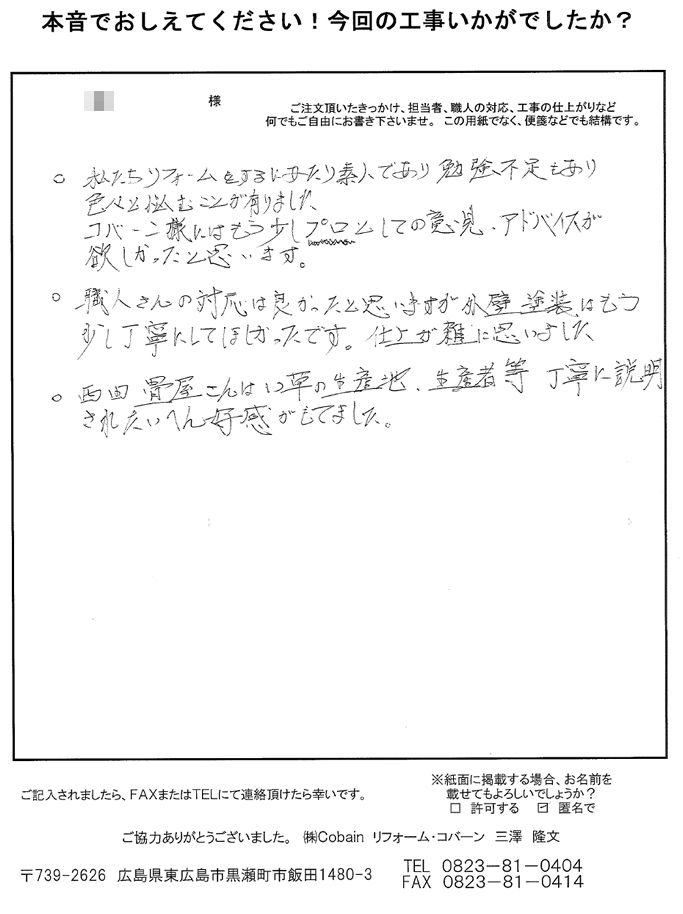 本音でおしえてください！今回の工事いかがでしたか？
様
ご注文頂いたきっかけ、担当者、職人の対応、工事の仕上がりなど
何でもご自由にお書き下さいませ。この用紙でなく、便箋などでも結構です。
○ 私たちリフォームをするに当たり素人であり勉強不足もあり
色々と悩むことが有りました
コバーン様にはもう少しプロとしての意見、アドバイスが
欲しかったと思います。
○ 職人さんの対応は良かったと思いますが外壁塗装はもう
少し丁寧にしてほしかったです。仕上が雑に思いました
○ 西田畳屋さんはい草の生産地、生産者等 丁寧に説明
されたいへん好感がもてました。
ご記入されましたら、FAXまたはTELにて連絡頂けたら幸いです。
※紙面に掲載する場合、お名前を
載せてもよろしいでしょうか？
□ 許可する ☑ 匿名で
ご協力ありがとうございました。 ㈱Cobain リフォーム・コバーン 三澤 隆文
〒739-2626 広島県東広島市黒瀬町市飯田1480-3
TEL 0823-81-0404
FAX 0823-81-0414